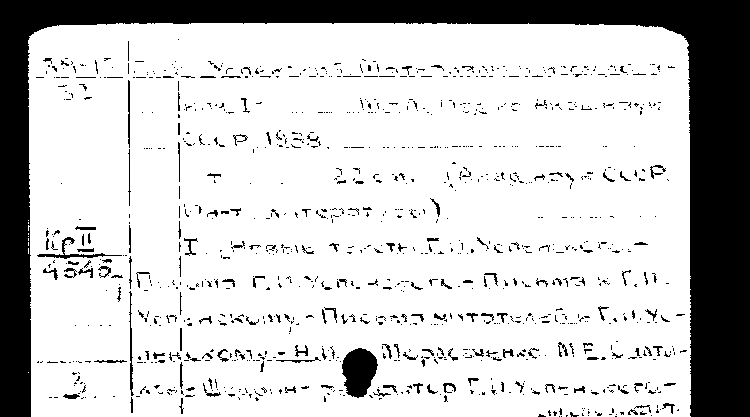 39-15 Г.И. Успенский. Материалы и исследова-
32
ния I- М.-Л., Изд-во Акад. наук
СССР, 1938.
т. 22 см. (Акад. наук СССР.
Ин-т литературы).
Кр II I. Новые тексты Г.И. Успенского.-
4545 Письма Г.И. Успенского.- Письма к Г.И.
1
Успенскому.- Письма читателей к Г.И. Ус-
пенскому.- Н.И. М.Е. Салты-
3 ков-Щедрин- редактор Г.И. Успенского.-